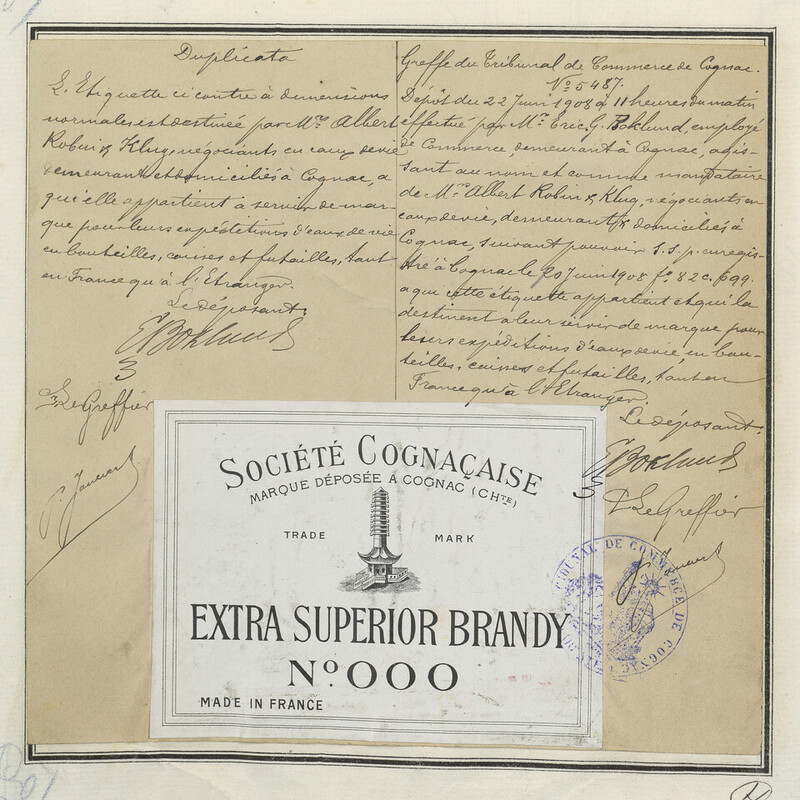 Duplicata
L'Etiquette ci contre à dimensions
normales, est destinée par Mrs Albert
Robin & Klug, négociants en eaux de vie
demeurant et domiciliés à Cognac, a
qu'elle appartient à servir de mar-
que pour leurs expéditions d'eaux de vie
en bouteilles, caisses et futailles, tant
en France qu'à l'Etranger.
Le déposant.
E Boklund
Le Greffier
Greffe du Tribunal de Commerce de Cognac.
No 5487.
Dépôt du 22 Juin 1908 à 11 heures du matin
effectué par Mr Eric. G. Boklund, employé
de Commerce, demeurant à Cognac, agis-
sant au nom et comme mandataire
de Mrs Albert Robin & Klug, négociants en
eaux de vie, demeurant & domiciliés à
Cognac, suivant pouvoir s.s.p. enregis-
tré à Cognac le 20 Juin 1908 fo 82 c. 699.
a qui cette étiquette appartient et qui la
destinent a leur servir de marque pour
leurs expéditions d'eaux de vie, en bou-
teilles, caisses et futailles, tant en
France qu'à l'Etranger.
Le déposant.
E Boklund
Le Greffier
SOCIÉTÉ COGNAÇAISE
MARQUE DÉPOSÉE À COGNAC (CHTE)
TRADE MARK
EXTRA SUPERIOR BRANDY
No 000
MADE IN FRANCE
TRIBUNAL DE COMMERCE DE COGNAC